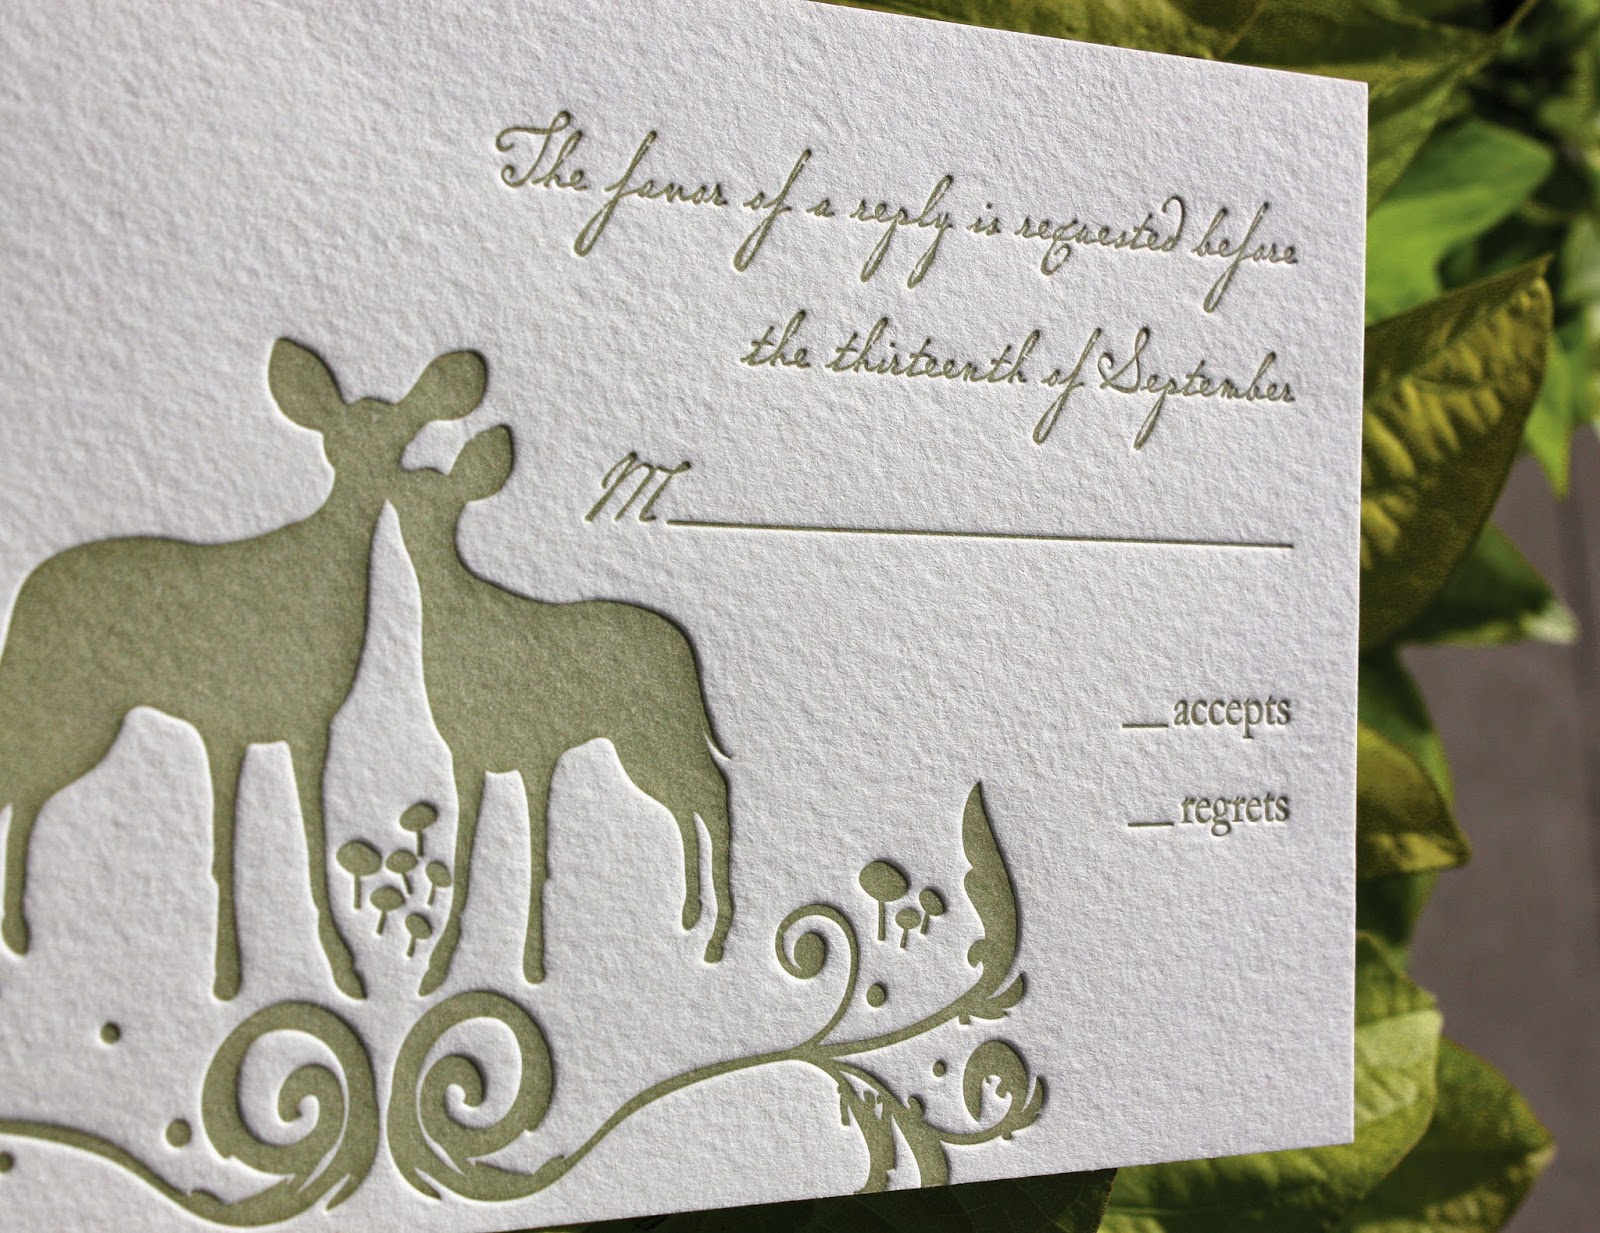 The favor of a reply is requested before
the thirteenth of September
M____________________
__accepts
__regrets